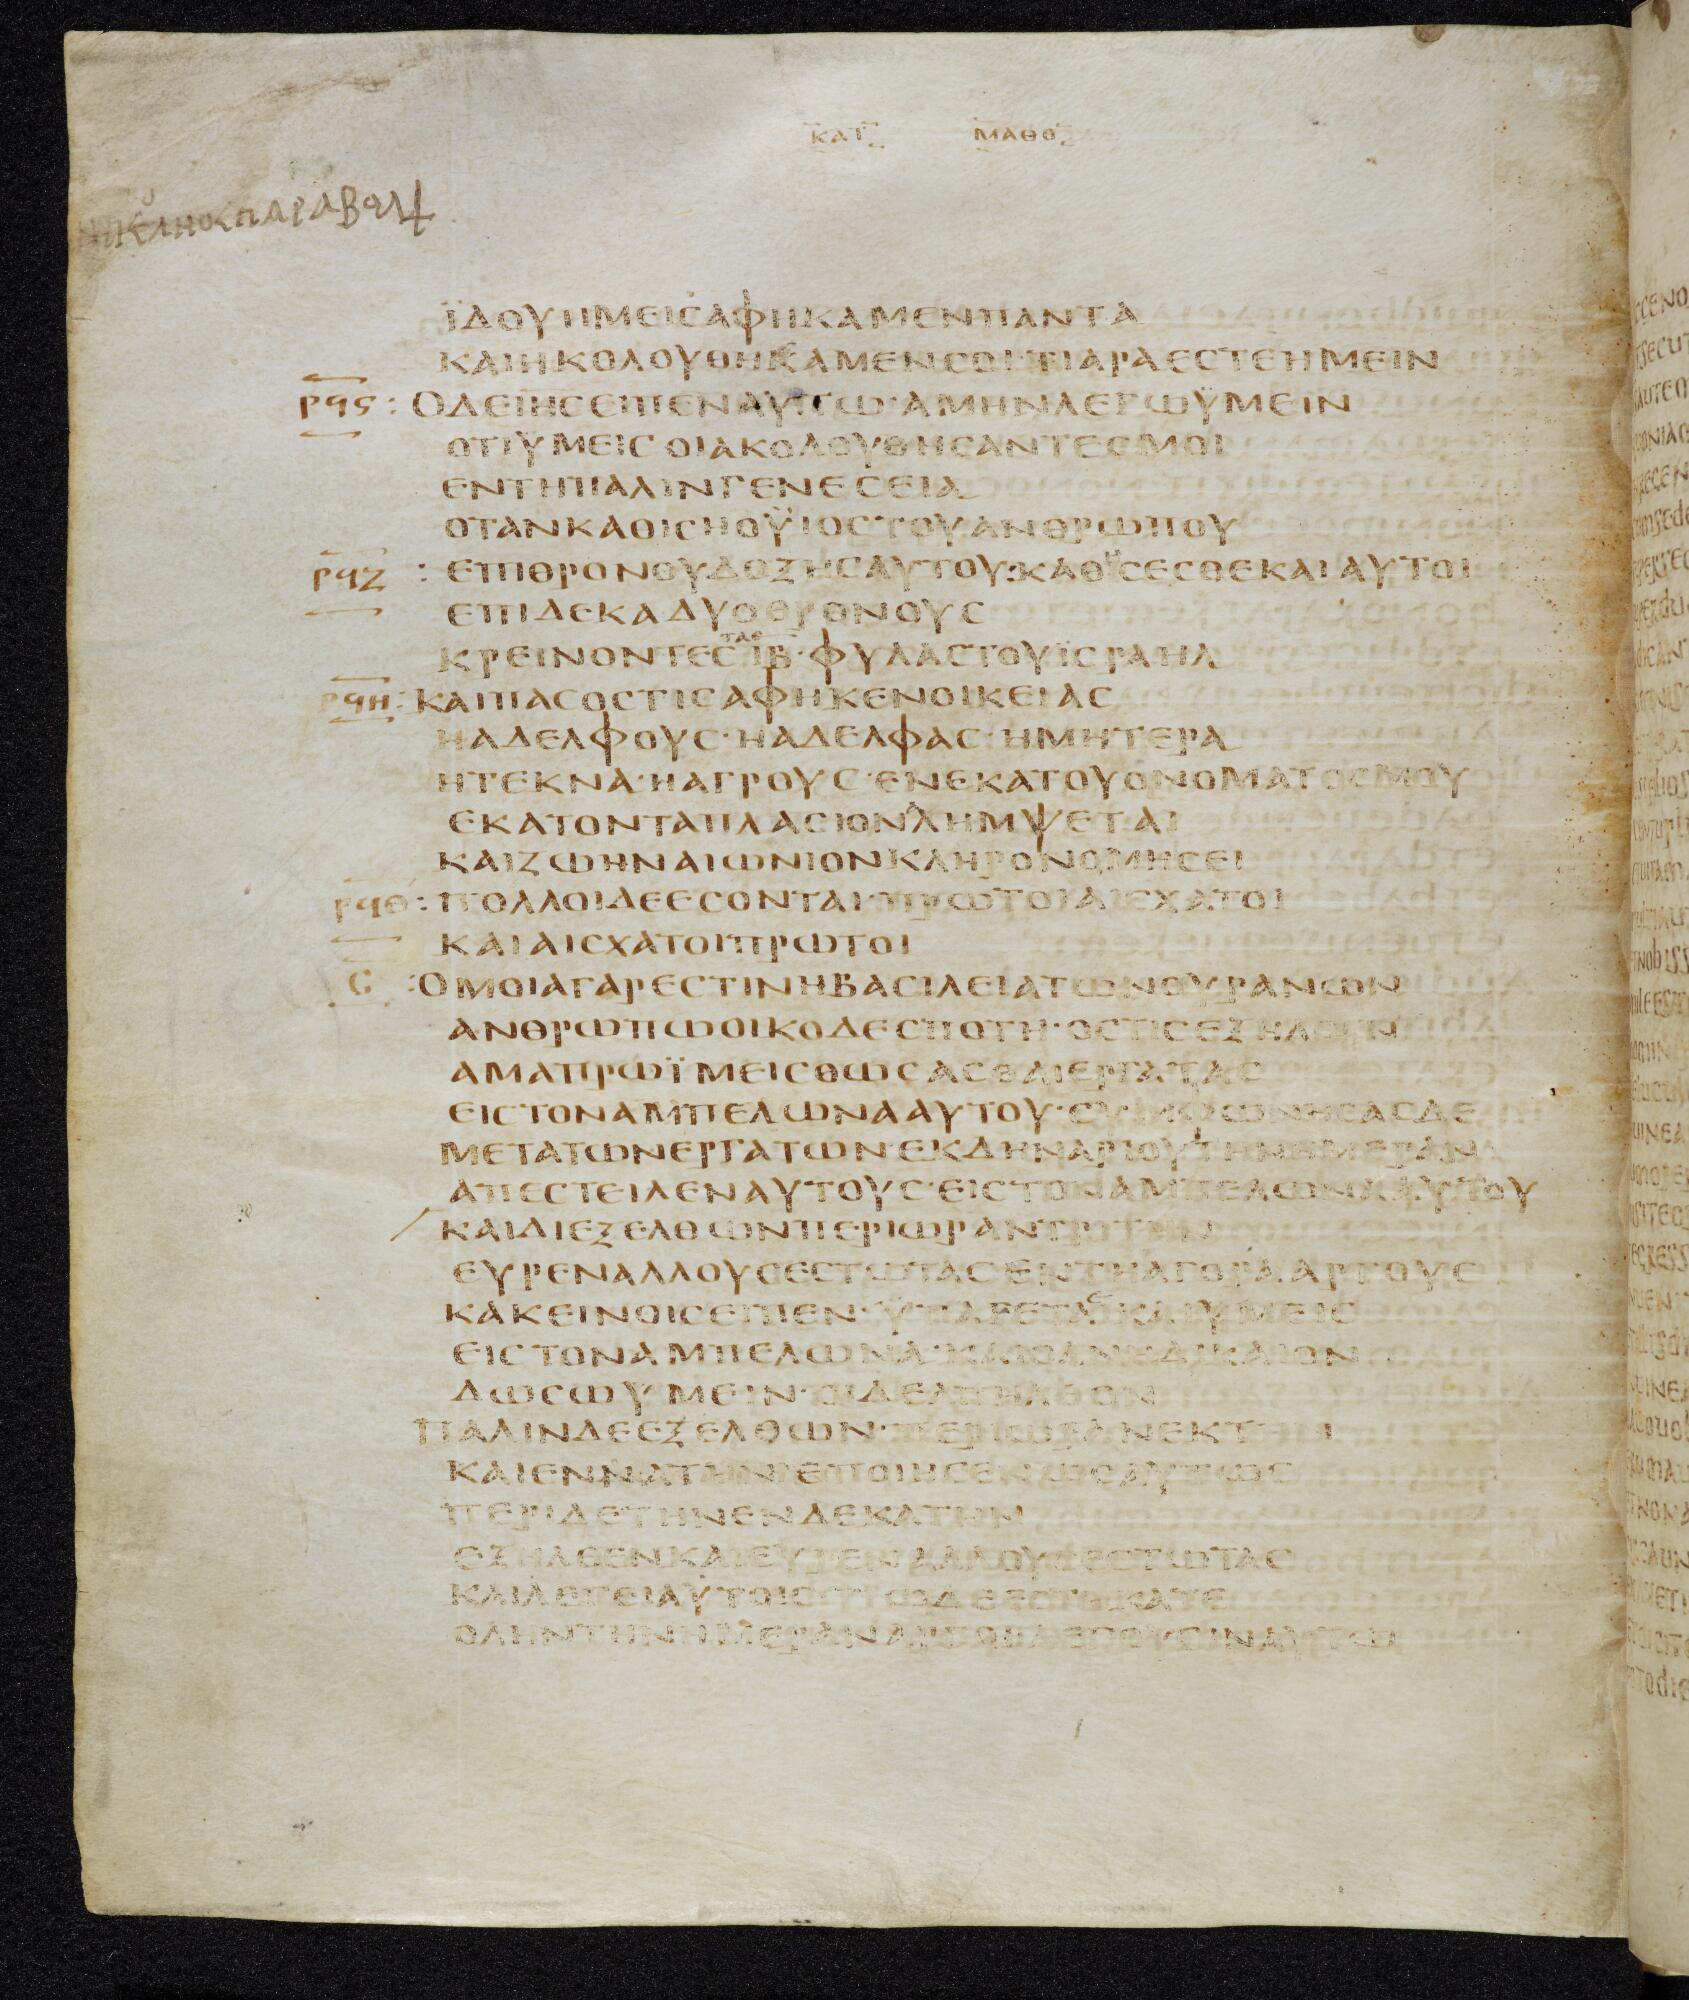 ΚΑΤ ΜΑΘΘ
ΪΔΟΥΗΜΕΙСΑΦΗΚΑΜΕΝΠΑΝΤΑ
ΚΑΙΗΚΟΛΟΥΘΗΚΑΜΕΝСΟΙ·ΤΙΑΡΑΕСΤΕΗΜΕΙΝ
ΡϤϚ : ΟΔΕΙΗСΕΙΠΕΝΑΥΤΩ·ΑΜΗΝΛΕΓΩΫΜΕΙΝ
ΟΤΙΫΜΕΙСΟΙΑΚΟΛΟΥΘΗСΑΝΤΕСΜΟΙ
ΕΝΤΗΠΑΛΙΝΓΕΝΕСΕΙΑ
ΟΤΑΝΚΑΘΙСΗΟΫΙΟСΤΟΥΑΝΘΡΩΠΟΥ
ΡϤΖ : ΕΠΙΘΡΟΝΟΥΔΟΞΗСΑΥΤΟΥ:ΚΑΘΗСΕСΘΕΚΑΙΑΥΤΟΙ
ΕΠΙΔΕΚΑΔΥΟΘΡΟΝΟΥС
ΚΡΕΙΝΟΝΤΕСΤΑСΙΒ·ΦΥΛΑСΤΟΥΪСΡΑΗΛ
ΡϤΗ : ΚΑΙΠΑСΟСΤΙСΑΦΗΚΕΝΟΙΚΕΙΑС
ΗΑΔΕΛΦΟΥС·ΗΑΔΕΛΦΑС·ΗΜΗΤΕΡΑ
ΗΤΕΚΝΑ·ΗΑΓΡΟΥС·ΕΝΕΚΑΤΟΥΟΝΟΜΑΤΟСΜΟΥ
ΕΚΑΤΟΝΤΑΠΛΑСΙΟΝΛΗΜΨΕΤΑΙ
ΚΑΙΖΩΗΝΑΙΩΝΙΟΝΚΛΗΡΟΝΟΜΗСΕΙ
ΡϤΘ : ΠΟΛΛΟΙΔΕΕСΟΝΤΑΙ·ΠΡΩΤΟΙΑΙСΧΑΤΟΙ
ΚΑΙΑΙСΧΑΤΟΙΠΡΩΤΟΙ
С : ΟΜΟΙΑΓΑΡΕСΤΙΝΗΒΑСΙΛΕΙΑΤΩΝΟΥΡΑΝΩΝ
ΑΝΘΡΩΠΩΟΙΚΟΔΕСΠΟΤΗ·ΟСΤΙСΕΞΗΛΘΕΝ
ΑΜΑΠΡΩΪΜΕΙСΘΩСΑСΘΑΙΕΡΓΑΤΑС
ΕΙСΤΟΝΑΜΠΕΛΩΝΑΑΥΤΟΥ·СΥΜΦΩΝΗСΑСΔΕ
ΜΕΤΑΤΩΝΕΡΓΑΤΩΝ·ΕΚΔΗΝΑΡΙΟΥΤΗΝΗΜΕΡΑΝ
ΑΠΕСΤΕΙΛΕΝΑΥΤΟΥС·ΕΙСΤΟΝΑΜΠΕΛΩΝΑΑΥΤΟΥ
ΚΑΙΔΙΕΞΕΛΘΩΝΠΕΡΙΩΡΑΝΤΡΙΤΗΝ
ΕΥΡΕΝΑΛΛΟΥСΕСΤΩΤΑСΕΝΤΗΑΓΟΡΑΑΡΓΟΥС
ΚΑΚΕΙΝΟΙСΕΙΠΕΝ·ΥΠΑΓΕΤΑΙΚΑΙΥΜΕΙС
ΕΙСΤΟΝΑΜΠΕΛΩΝΑ·ΚΑΙΟΑΝΗΔΙΚΑΙΟΝ
ΔΩСΩΥΜΕΙΝ·ΟΙΔΕΑΠΗΛΘΟΝ
ΠΑΛΙΝΔΕΕΞΕΛΘΩΝ·ΠΕΡΙΩΡΑΝΕΚΤΗΝ
ΚΑΙΕΝΝΑΤΗΝΕΠΟΙΗСΕΝΩСΑΥΤΩС
ΠΕΡΙΔΕΤΗΝΕΝΔΕΚΑΤΗΝ
ΕΞΗΛΘΕΝΚΑΙΕΥΡΕΝΑΛΛΟΥСΕСΤΩΤΑС
ΚΑΙΛΕΓΕΙΑΥΤΟΙСΤΙΩΔΕΕСΤΗΚΑΤΕ
ΟΛΗΝΤΗΝΗΜΕΡΑΝΑΡΓΟΙ·ΛΕΓΟΥСΙΝΑΥΤΩ